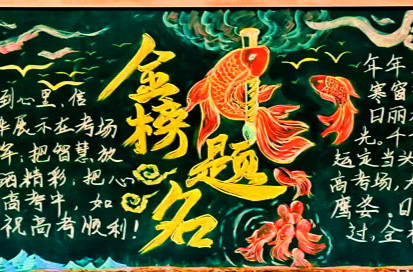 金榜题名
到心里,信
展示在考场
军;把智慧放
丽精彩;把心
高考中,如
祝高考顺利!
年年
寒窗
日丽
光。千
运定当头
高考场,大
鹰姿。日
过,金